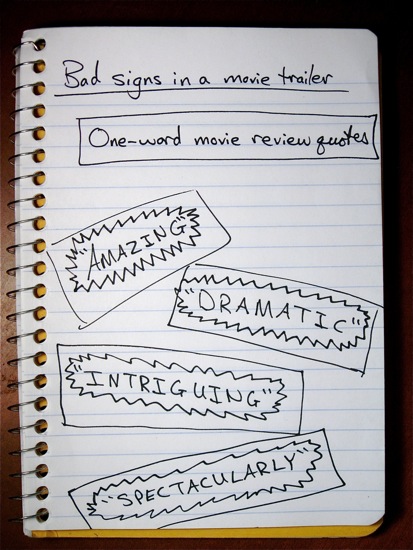 Bad signs in a movie trailer
One-word movie review quotes
"AMAZING"
"DRAMATIC"
"INTRIGUING"
"SPECTACULARLY"